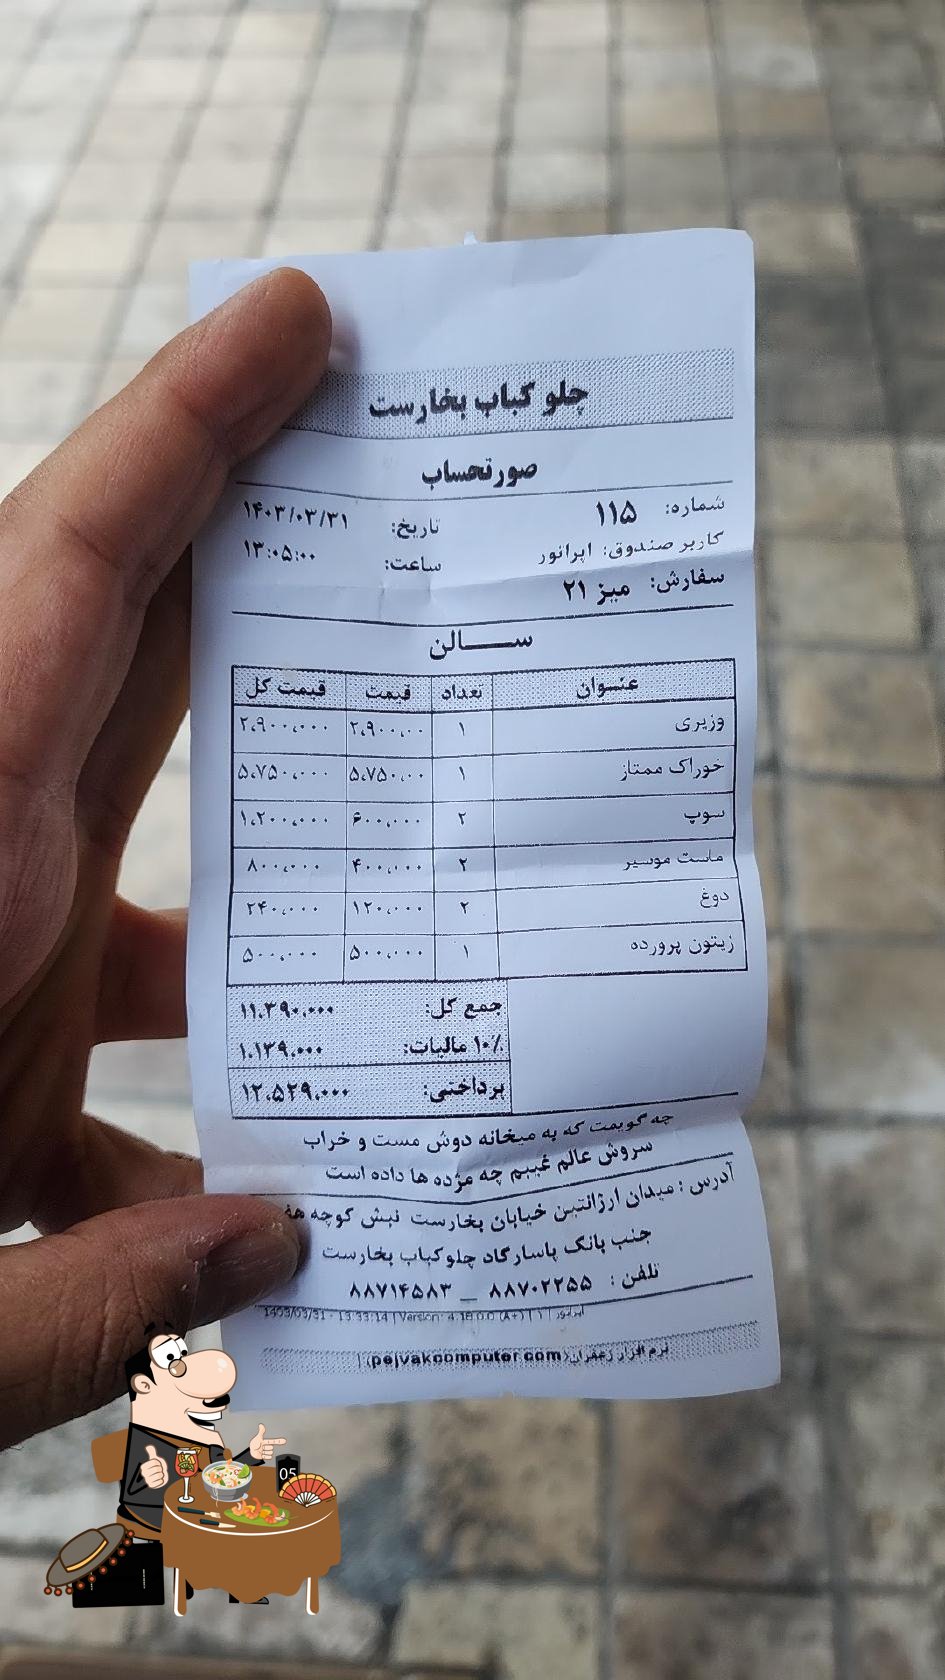 چلو کباب بخارست
صورتحساب
شماره: ۱۱۵ تاریخ: ۱۴۰۳/۰۳/۳۱
کاربر صندوق: اپراتور ساعت: ۱۳:۰۵:۰۰
سفارش: میز ۲۱
ســـالن
عنـوان تعداد قیمت قیمت کل
وزیری ۱ ۲،۹۰۰،۰۰ ۲،۹۰۰،۰۰۰
خوراک ممتاز ۱ ۵،۷۵۰،۰۰ ۵،۷۵۰،۰۰۰
سوپ ۲ ۶۰۰،۰۰۰ ۱،۲۰۰،۰۰۰
ماست موسیر ۲ ۴۰۰،۰۰۰ ۸۰۰،۰۰۰
دوغ ۲ ۱۲۰،۰۰۰ ۲۴۰،۰۰۰
زیتون پرورده ۱ ۵۰۰،۰۰۰ ۵۰۰،۰۰۰
جمع کل: ۱۱،۳۹۰،۰۰۰
۱۰٪ مالیات: ۱،۱۳۹،۰۰۰
پرداختی: ۱۲،۵۲۹،۰۰۰
چه گویمت که به میخانه دوش مست و خراب
سروش عالم غیبم چه مژده ها داده است
آدرس : میدان ارژانتین خیابان بخارست نبش کوچه
جنب بانک پاسارگاد چلوکباب بخارست
تلفن : ۸۸۷۰۲۲۵۵ _ ۸۸۷۱۴۵۸۳
اپراتور | ۱ | 1403/03/31 - 13:33:14 | Version: 4.18.0.0 (A+)
نرم افزار زعفران (pejvakcomputer.com)
05